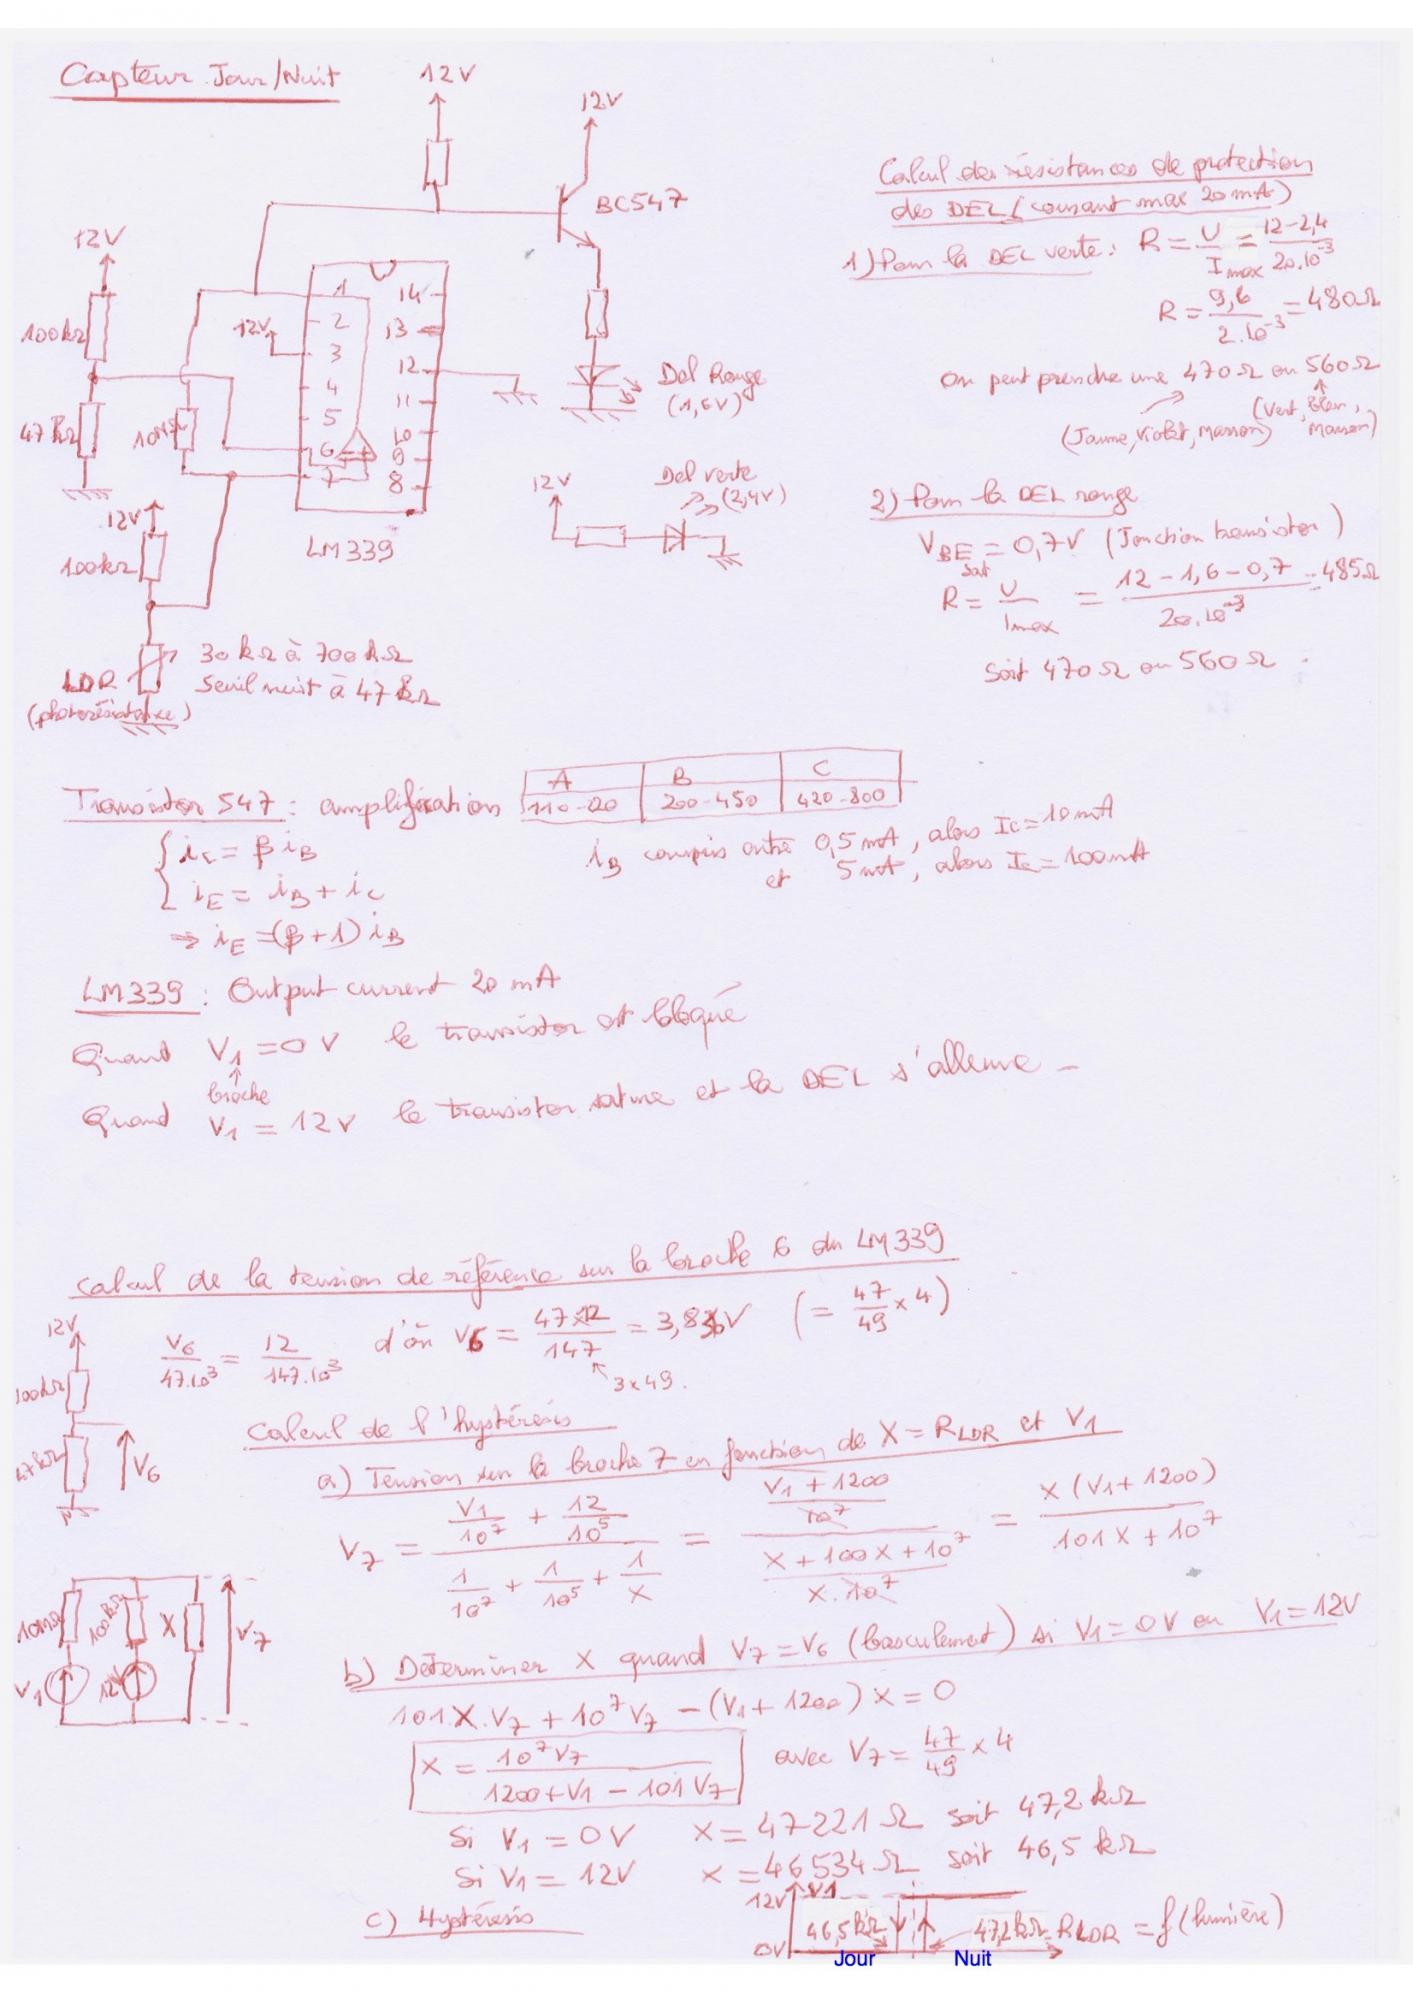 Capteur Jour/Nuit
12V
12V
BC547
12V
100kΩ
47kΩ
10MΩ
12V
1
2
3
4
5
6
7
14
13
12
11
10
9
8
LM339
Del Rouge
(1,6V)
12V
Del verte
(2,4V)
12V
100kΩ
LDR
(photorésistance)
30kΩ à 700kΩ
Seuil nuit à 47kΩ
Calcul des résistances de protection
des DEL (courant max 20mA)
1) Pour la DEL verte : R = U/Imax = (12-2,4)/(20.10⁻³)
R = 9,6/(2.10⁻³) = 480Ω
On peut prendre une 470Ω ou 560Ω
(Jaune, Violet, Marron)
(Vert, Bleu, Marron)
2) Pour la DEL rouge
VBE sat = 0,7V (Jonction transistor)
R = U/Imax = (12-1,6-0,7)/(20.10⁻³) = 485Ω
soit 470Ω ou 560Ω.
Transistor 547 : amplification
A B C
200-450 420-800
{ iC = β iB
{ iE = iB + iC
⇒ iE = (β+1) iB
iB compris entre 0,5mA, alors Ic = 10mA
et 5mA, alors Ic = 100mA
LM339 : Output current 20 mA
Quand V1 = 0V le transistor est bloqué
broche
Quand V1 = 12V le transistor sature et la DEL s'allume
Calcul de la tension de référence sur la broche 6 du LM339
12V
100kΩ
47kΩ
V6
V6/(47.10³) = 12/(147.10³) d'où V6 = (47×12)/147 = 3,836V (= 47/49 × 4)
3×49.
Calcul de l'hystérésis
a) Tension sur la broche 7 en fonction de X = RLDR et V1
V7 = (V1/10⁷ + 12/10⁵)/(1/10⁷ + 1/10⁵ + 1/X) = ((V1+1200)/10⁷)/((X+100X+10⁷)/(X.10⁷)) = X(V1+1200)/(101X+10⁷)
10MΩ
100kΩ
X
V7
V1
12V
b) Déterminer X quand V7 = V6 (basculement) si V1 = 0V ou V1 = 12V
101X.V7 + 10⁷V7 - (V1+1200)X = 0
X = 10⁷V7/(1200+V1-101V7) avec V7 = 47/49 × 4
Si V1 = 0V X = 47221Ω soit 47,2kΩ
Si V1 = 12V X = 46534Ω soit 46,5kΩ
c) Hystérésis
12V
V1
0V
46,5kΩ
47,2kΩ
RLDR = f(lumière)
Jour
Nuit